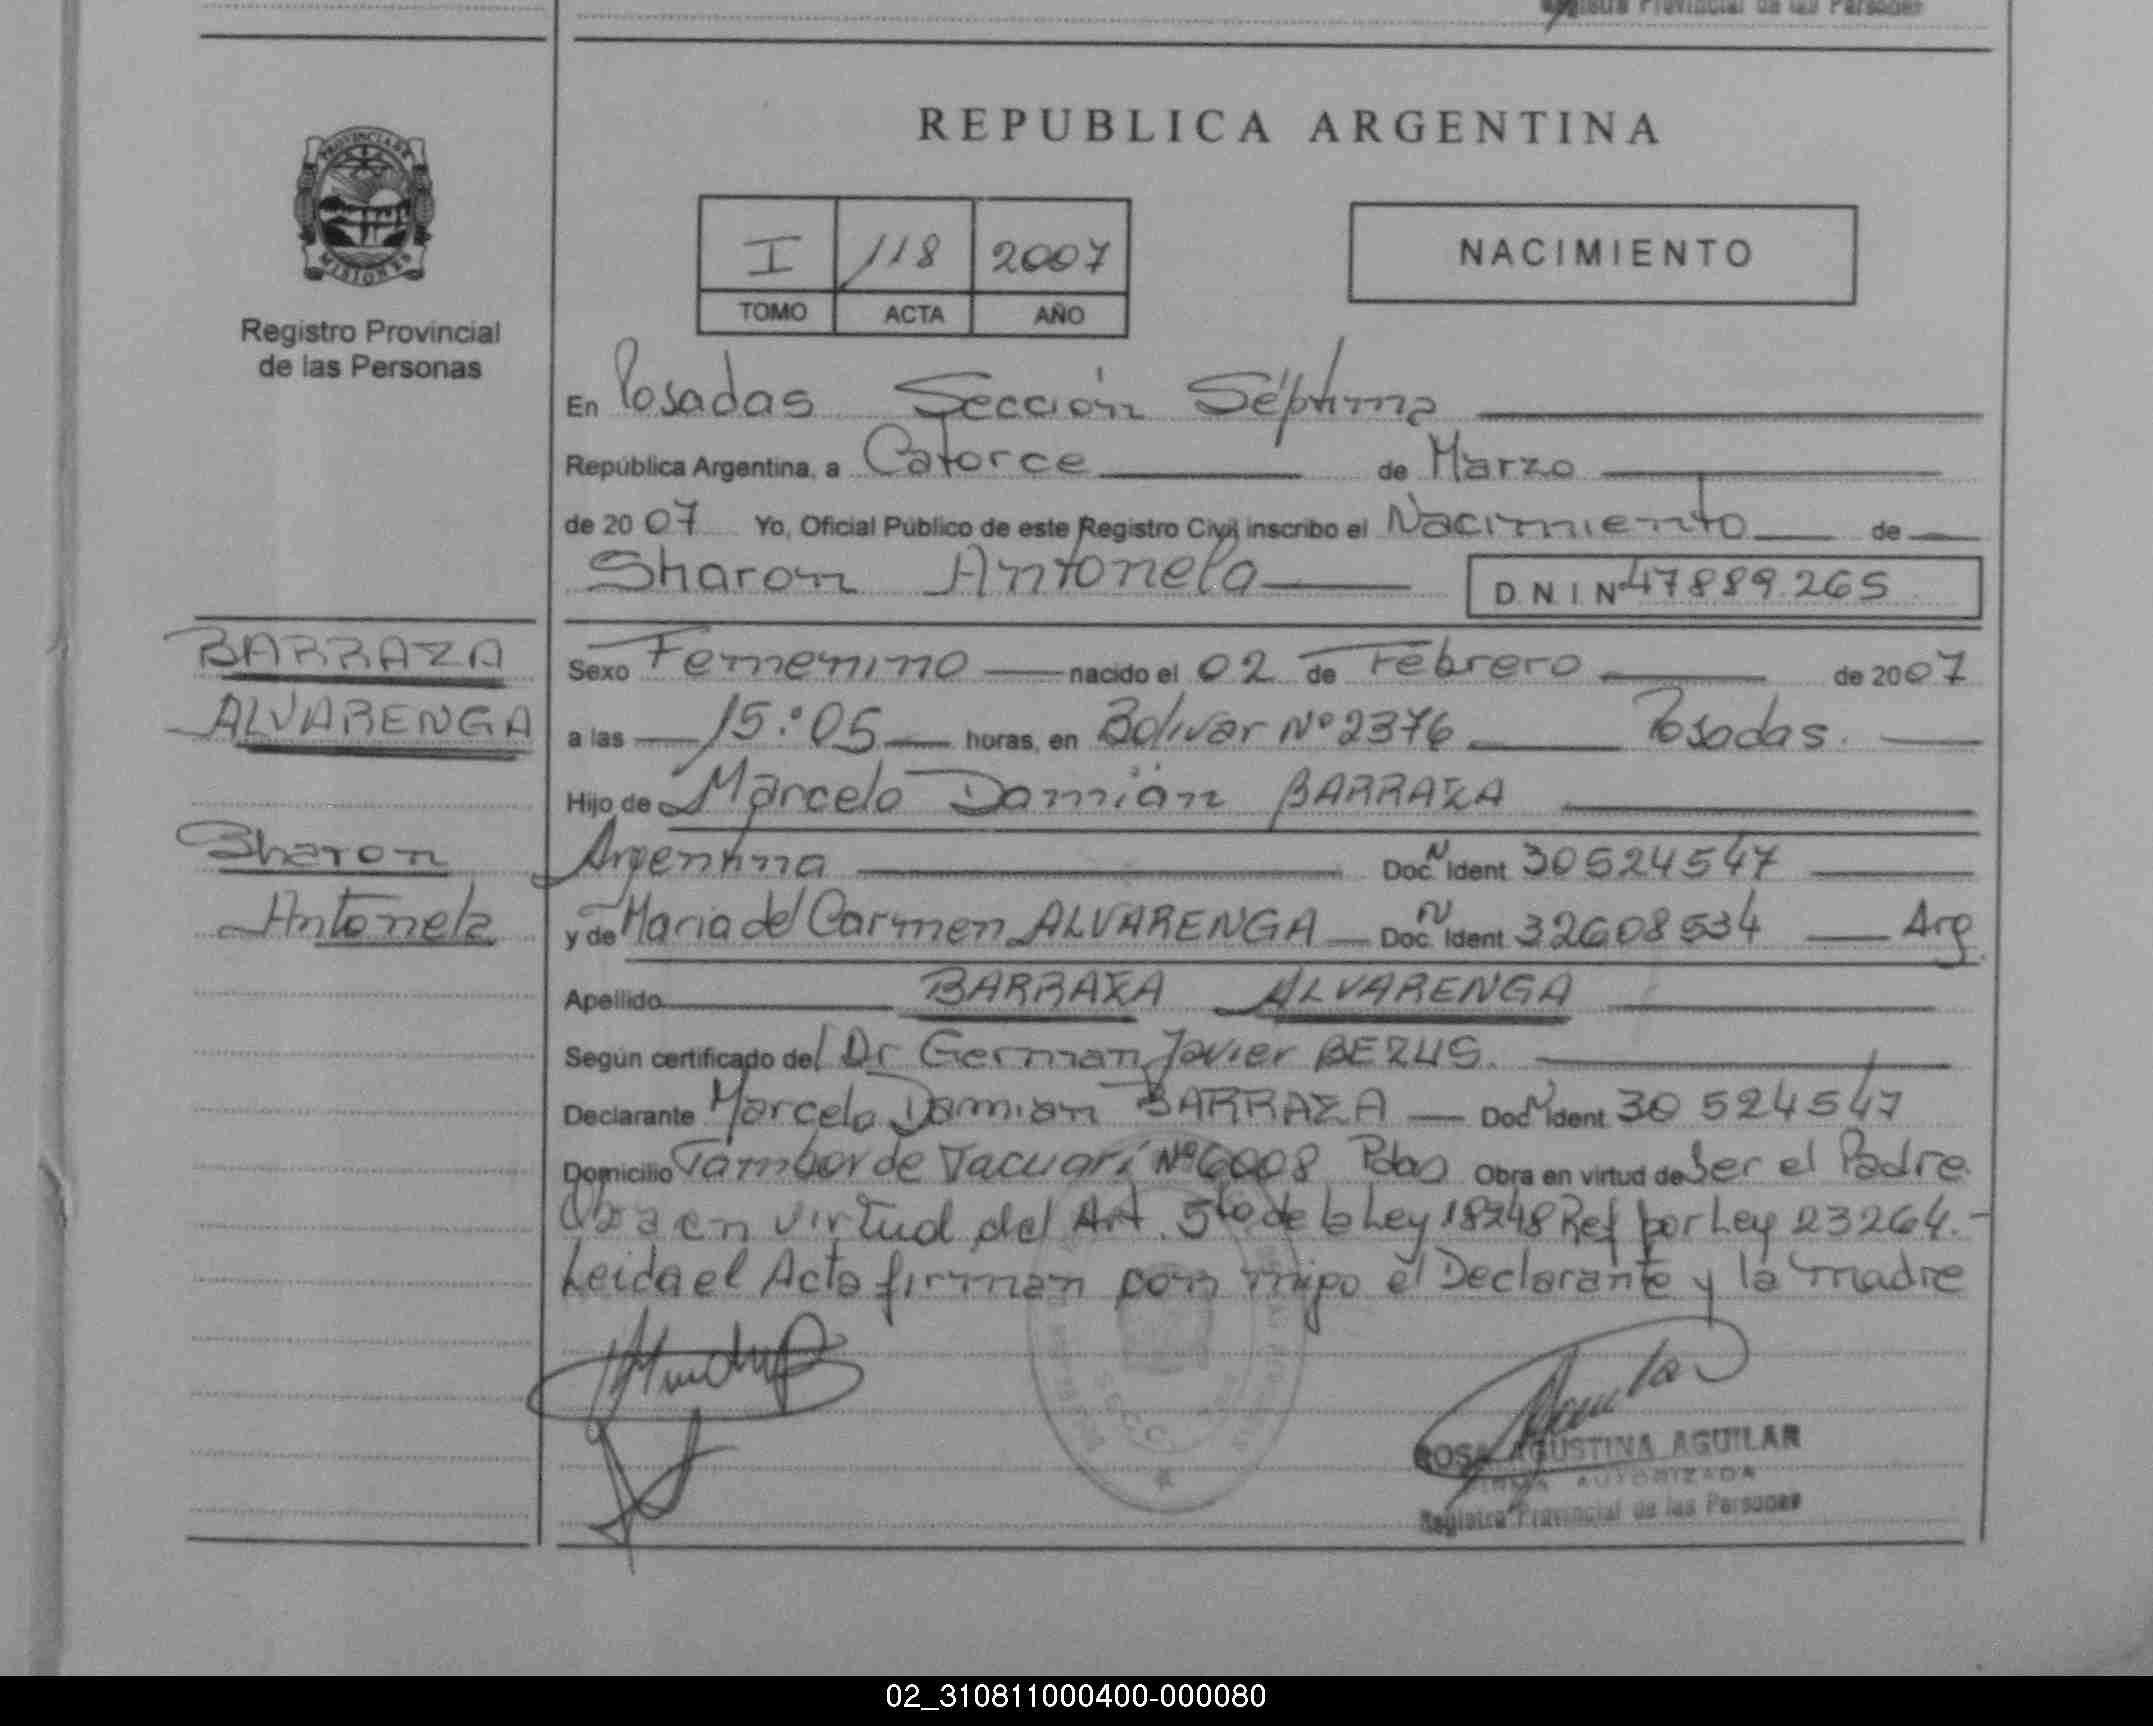 Registro Provincial de las Personas
REPUBLICA ARGENTINA
PROVINCIA DE
MISIONES
Registro Provincial
de las Personas
I 118 2007
TOMO ACTA AÑO
NACIMIENTO
En Posadas Sección Séptima
República Argentina, a Catorce de Marzo
de 2007 Yo, Oficial Público de este Registro Civil inscribo el Nacimiento de
Sharon Antonela D.N.I. Nº 47889.265
BARRAZA
ALVARENGA
Sharon
Antonela
Sexo Femenino nacido el 02 de Febrero de 2007
a las 15:05 horas, en Bolivar Nº 2376 Posadas.
Hijo de Marcelo Damián BARRAZA
Argentina Doc N Ident 30524547
y de Maria del Carmen ALVARENGA Doc N Ident 32608534 Arg
Apellido BARRAZA ALVARENGA
Según certificado del Dr German Javier BEZUS.
Declarante Marcelo Damian BARRAZA Doc N Ident 30 524547
Domicilio Tambor de Tacuarí Nº 6008 Pdas Obra en virtud de Ser el Padre.
Obra en virtud del Art. 5to de la Ley 18248 Ref por Ley 23264.-
Leida el Acta firman con migo el Declarante y la madre
ROSA AGUSTINA AGUILAR
FIRMA AUTORIZADA
Registro Provincial de las Personas
02_310811000400-000080